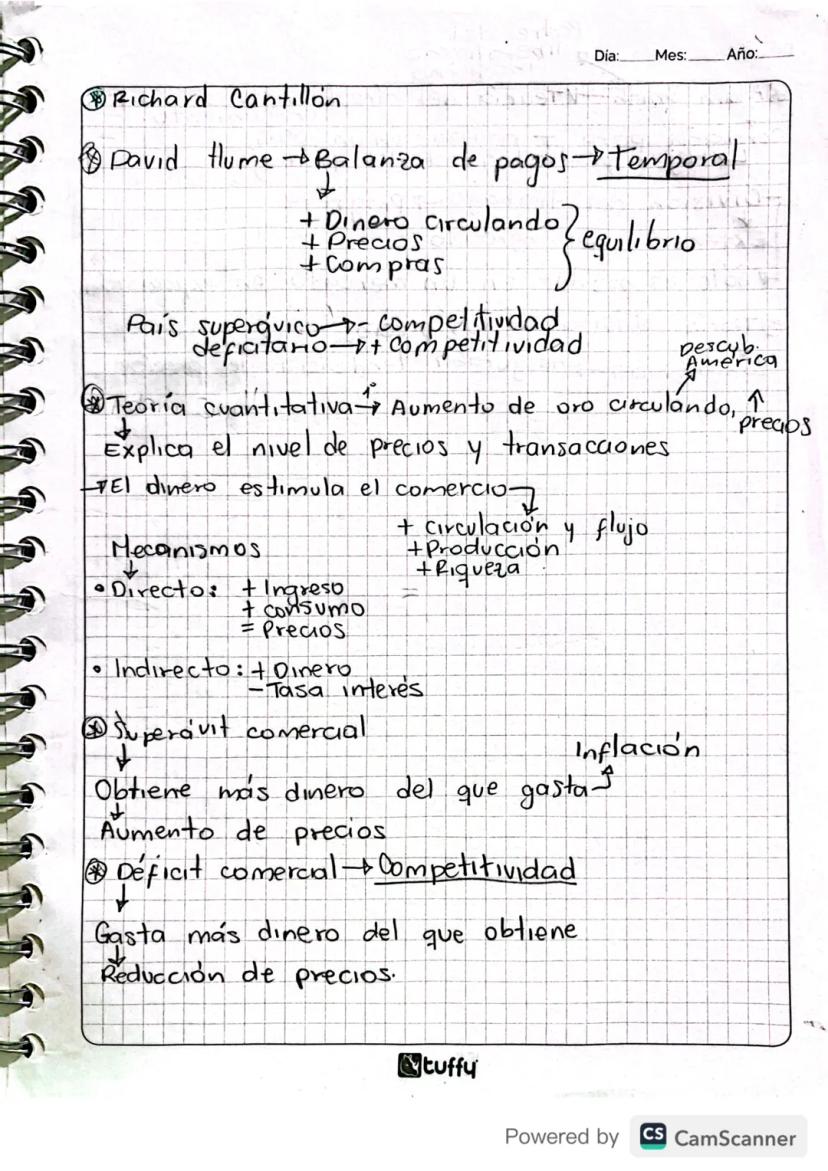 Día:____ Mes:____ Año:____
Richard Cantillón
David Hume → Balanza de pagos → Temporal
↓
+ Dinero circulando
+ Precios } equilibrio
+ Compras
País superávico → - competitividad
deficitario → + competitividad
Descub.
América
Teoría cuantitativa 1° → Aumento de oro circulando, ↑
precios
↓
Explica el nivel de precios y transacciones
→ El dinero estimula el comercio
↓
+ circulación y flujo
Mecanismos
+ Producción
+ Riqueza
• Directo: + Ingreso
+ consumo
= Precios
• Indirecto: + Dinero
- Tasa interés
Superávit comercial
↓
Inflación
Obtiene más dinero del que gasta
↓
Aumento de precios
Déficit comercial → Competitividad
↓
Gasta más dinero del que obtiene
↓
Reducción de precios.
tuffy
Powered by CS CamScanner